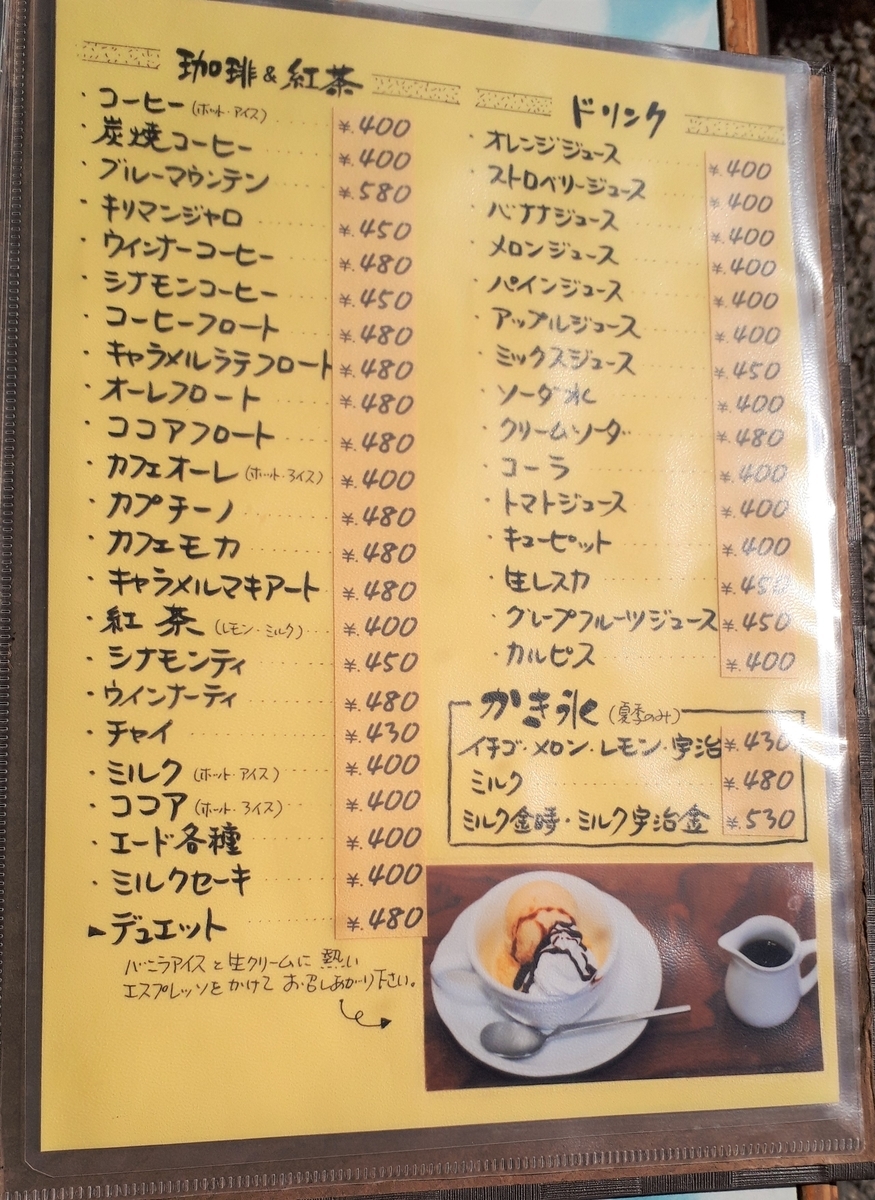 珈琲&紅茶
・コーヒー(ホット・アイス) ¥.400
・炭焼コーヒー ¥.400
・ブルーマウンテン ¥.580
・キリマンジャロ ¥.450
・ウインナーコーヒー ¥.480
・シナモンコーヒー ¥.450
・コーヒーフロート ¥.480
・キャラメルラテフロート ¥.480
・オーレフロート ¥.480
・ココアフロート ¥.480
・カフェオーレ(ホット・アイス) ¥.400
・カプチーノ ¥.480
・カフェモカ ¥.480
・キャラメルマキアート ¥.480
・紅茶(レモン・ミルク) ¥.400
・シナモンティ ¥.450
・ウインナーティ ¥.480
・チャイ ¥.430
・ミルク(ホット・アイス) ¥.400
・ココア(ホット・アイス) ¥.400
・エード各種 ¥.400
・ミルクセーキ ¥.400
▶デュエット ¥.480
バニラアイスと生クリームに熱い
エスプレッソをかけてお召しあがり下さい。
ドリンク
・オレンジジュース ¥.400
・ストロベリージュース ¥.400
・バナナジュース ¥.400
・メロンジュース ¥.400
・パインジュース ¥.400
・アップルジュース ¥.400
・ミックスジュース ¥.450
・ソーダ水 ¥.400
・クリームソーダ ¥.480
・コーラ ¥.400
・トマトジュース ¥.400
・キューピット ¥.400
・生レスカ ¥.450
・グレープフルーツジュース ¥.450
・カルピス ¥.400
かき氷(夏季のみ)
イチゴ・メロン・レモン・宇治 ¥.430
ミルク ¥.480
ミルク金時・ミルク宇治金 ¥.530